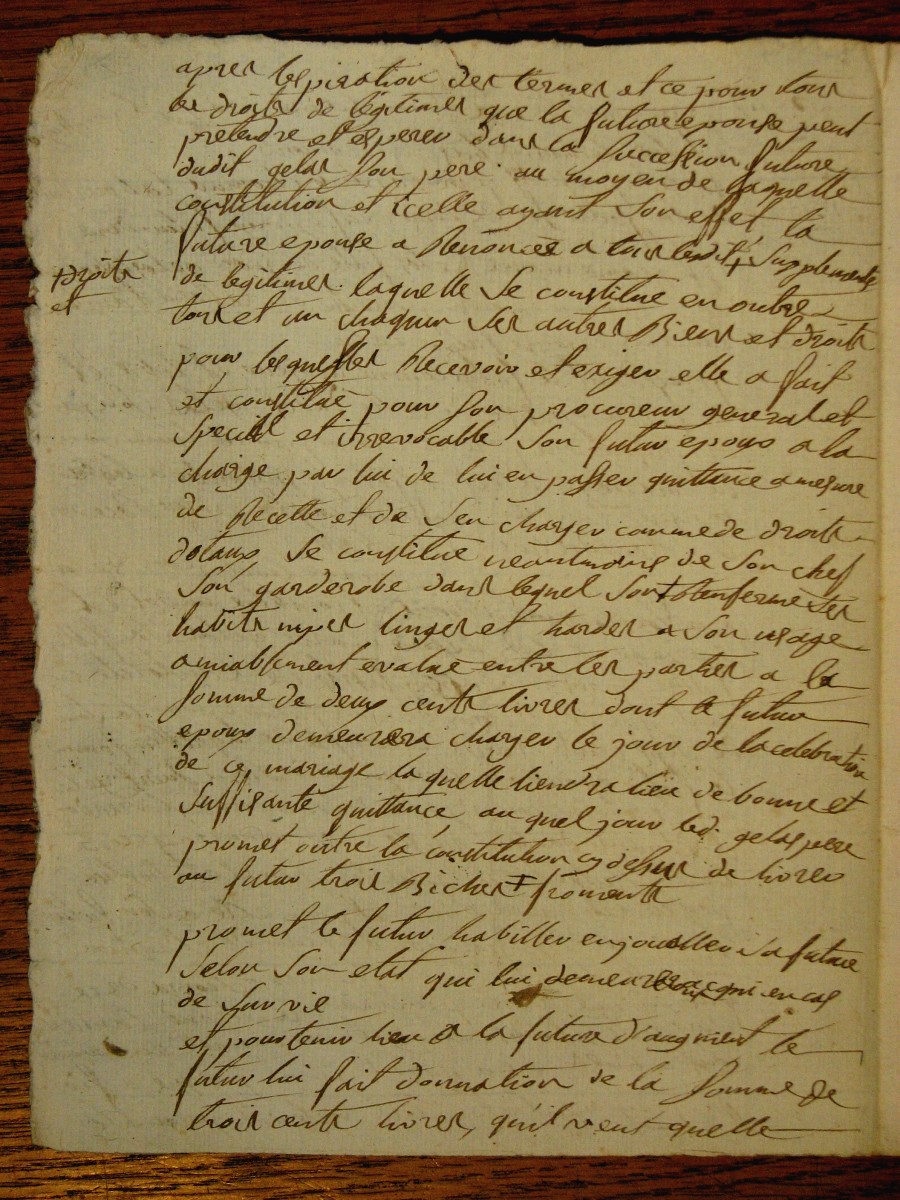 apres lespiration des termes et ce pour tous
les droits de legitimes que la future epouse peut
pretendre et esperer dans la succession future
dudit gelas son pere. au moyen de laquelle
constitution et icelle ayant son effet la
future epouse a Renoncée a tous lesdits + supplements
droits
et
de legitimes. laquelle se constitue en outre
tous et un chaqun ses autres Biens et droits
pour lesquelles Recevoir et exiger elle a fait
et constitué pour son procureur general et
special et irrevocable son futur epoux a la
charge par lui de lui en passer quittance a mesure
de Recette et de s'en charger comme de droits
dotaux se constitue neantmoins de son chef
son garderobe dans lequel sont Renfermé ses
habits nipes linges et hardes a son usage
amiablement evalué entre les parties a la
somme de deux cents livres dont le futur
epoux demeurera charger le jour de la celebration
de ce mariage laquelle tiendra lieu de bonne et
suffisante quittance auquel jour led. gelas pere
promet outre la constitution cy dessus de livrer
au futur trois Bichets + froments
promet le futur habiller enjoualler sa future
selon son etat qui lui demeurera acqui en cas
de survie
et pour tenir lieu a la future d'augment le
futur lui fait donnation de la somme de
trois cents livres, qu'il veut quelle